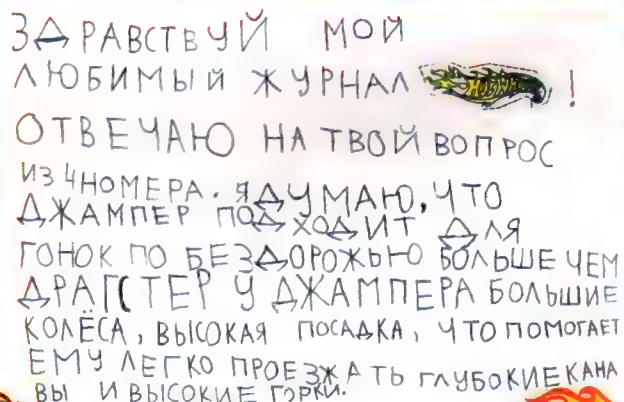 ЗДРАВСТВУЙ МОЙ
ЛЮБИМЫЙ ЖУРНАЛ !
ОТВЕЧАЮ НА ТВОЙ ВОПРОС
ИЗ 4 НОМЕРА. Я ДУМАЮ, ЧТО
ДЖАМПЕР ПОДХОДИТ ДЛЯ
ГОНОК ПО БЕЗДОРОЖЬЮ БОЛЬШЕ ЧЕМ
ДРАГСТЕР У ДЖАМПЕРА БОЛЬШИЕ
КОЛЁСА, ВЫСОКАЯ ПОСАДКА, ЧТО ПОМОГАЕТ
ЕМУ ЛЕГКО ПРОЕЗЖАТЬ ГЛУБОКИЕ КАНА
ВЫ И ВЫСОКИЕ ГОРКИ.